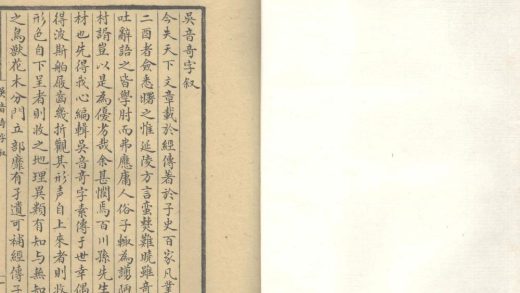 吳音奇字叙
今夫天下文章載於經傳著於子史百家凡業
二酉者僉悉之惟延陵方言蛮楚難曉雖奇
吐辭語之皆肘而弗應庸人俗子輙為陋
村豈以是為優劣哉余甚憫焉百川孫先生
材也先得我心編輯吳音奇字素傳于世幸偶
得波斯舶屐齒幾折觀其形声自上來者則收
形色自下呈者則收之地理異類有知与無知
之鳥獸花木分門立部靡有孑遺可補經傳子
吳音奇字叙